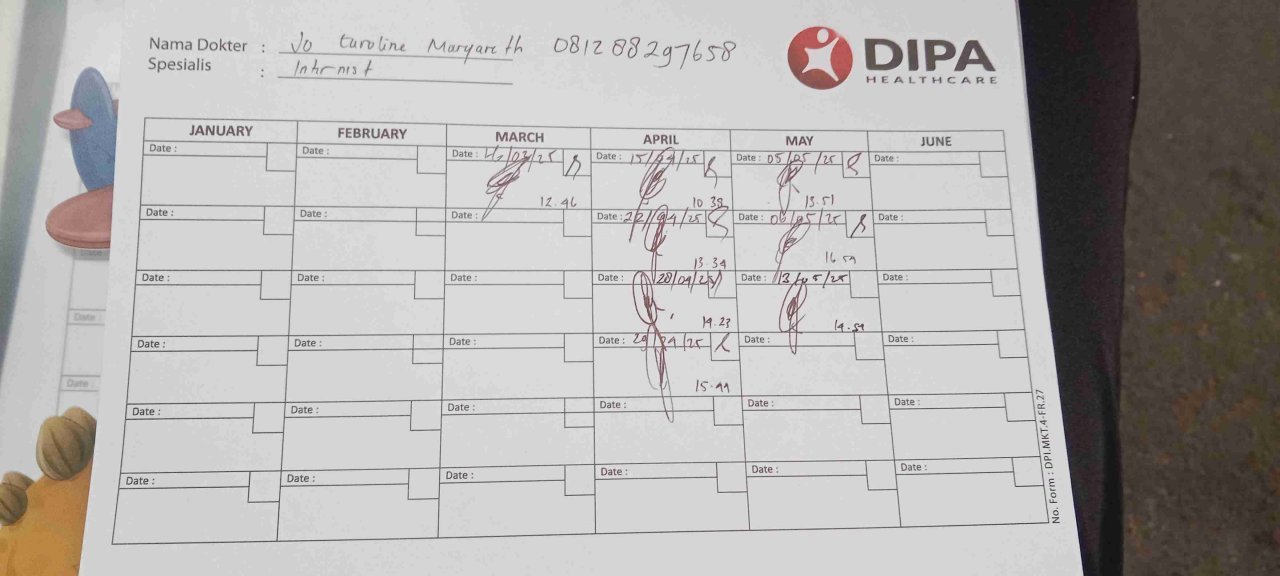 Nama Dokter : Jo Caroline Margareth 081288297658
Spesialis : Internist
DIPA
HEALTHCARE
JANUARY FEBRUARY MARCH APRIL MAY JUNE
Date : Date : Date : /03/25 Date : 15/04/25 Date : 05/05/25 Date :
12.46 10.39 13.51
Date : Date : Date : Date : 22/04/25 Date : 06/05/25 Date :
13.34 16.59
Date : Date : Date : Date : 28/04/25 Date : 13/05/25 Date :
14.23 14.59
Date : Date : Date : Date : 29/04/25 Date : Date :
15.44
Date : Date : Date : Date : Date : Date :
Date : Date : Date : Date : Date : Date :
No. Form : DPI.MKT.4-FR.27
Date :
Date :
Date :